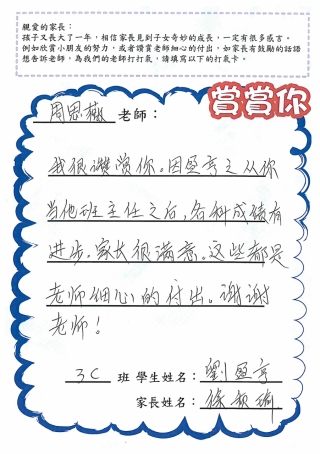 親愛的家長：
孩子又長大了一年，相信家長見到子女奇妙的成長，一定有很多感言。
例如欣賞小朋友的努力，或者讚賞老師細心的付出，如家長有鼓勵的話語
想告訴老師，為我們的老師打打氣，請填寫以下的打氣卡。
賞賞你
周思 老師：
我很讚賞你。因盈亨之从你
当他班主任之后，各科成绩有
进步。家长很满意。这些都是
老师细心的付出。谢谢
老师！
3C 班 學生姓名：劉盈亨
家長姓名：徐 瑜